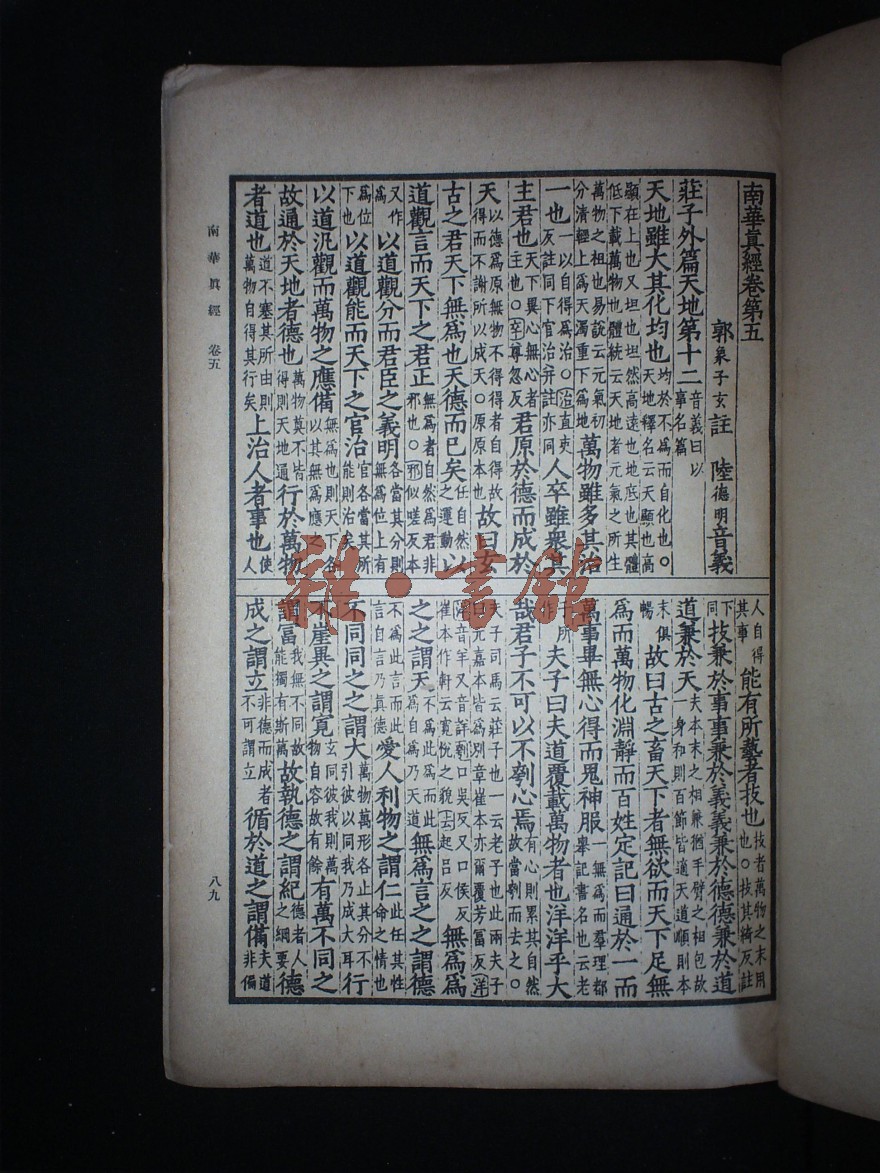 南華眞經卷第五
郭象子玄註 陸德明音義
莊子外篇天地第十二音義曰以事名篇
天地雖大其化均也均於不爲而自化也○天地釋名云天顯也高
顯在上也又坦也坦然高遠也地底也其體低下載萬物也體統云天地者元氣之所生
萬物之祖也易說云元氣初分清輕上爲天濁重下爲地萬物雖多其治
一也一以自得爲治○治直吏反註同下官治幷註亦同人卒雖衆其
主君也天下異心無心者主也○卒尊忽反君原於德而成於
天以德爲原無物不得得者自得故得而不謝所以成天○原原本也故曰玄
古之君天下無爲也天德而已矣任自然之運動以
道觀言而天下之君正無爲者自然爲君非邪也○邪似嗟反本
又作爲以道觀分而君臣之義明各當其分則無爲位上有
爲位下也以道觀能而天下之官治官各當其所能則治矣
以道汎觀而萬物之應備無爲也則天下各以其無爲應之
故通於天地者德也萬物莫不皆得則天地通行於萬物
者道也道不塞其所由則萬物自得其行矣上治人者事也使人
人自得其事能有所藝者技也技者萬物之末用也○技其綺反註
下同技兼於事事兼於義義兼於德德兼於道
道兼於天夫本末之相兼猶手臂之相包故一身和則百節皆適天道順則本
末俱暢故曰古之畜天下者無欲而天下足無
爲而萬物化淵靜而百姓定記曰通於一而
萬事畢無心得而鬼神服一無爲而羣理都舉記書名也云老
子所作夫子曰夫道覆載萬物者也洋洋乎大
哉君子不可以不刳心焉有心則累其自然故當刳而去之○
夫子司馬云莊子也一云老子也此兩夫子曰元嘉本皆爲別章崔本亦爾覆芳富反洋
洋音羊又音詳刳口吳反又口侯反崔本作軒云寬悅之貌去起呂反無爲爲
之之謂天不爲此爲而此爲自爲乃天道無爲言之之謂德
不爲此言而此言自言乃眞德愛人利物之謂仁此任其性命之情也
不同同之之謂大萬物萬形各止其分不引彼以同我乃成大耳行
不崖異之謂寛玄同彼我則萬物自容故有餘有萬不同之
謂富我無不同故能獨有斯萬故執德之謂紀德者人之綱要德
成之謂立非德而成者不可謂立循於道之謂備夫道非偏
南華眞經 卷五
八九
雜·書館